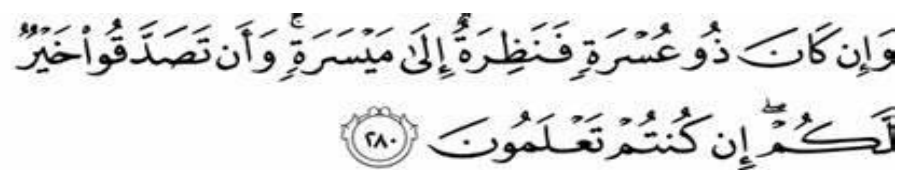 وَإِن كَانَ ذُو عُسْرَةٍ فَنَظِرَةٌ إِلَىٰ مَيْسَرَةٍ ۚ وَأَن تَصَدَّقُوا۟ خَيْرٌ
لَّكُمْ ۖ إِن كُنتُمْ تَعْلَمُونَ ٢٨٠